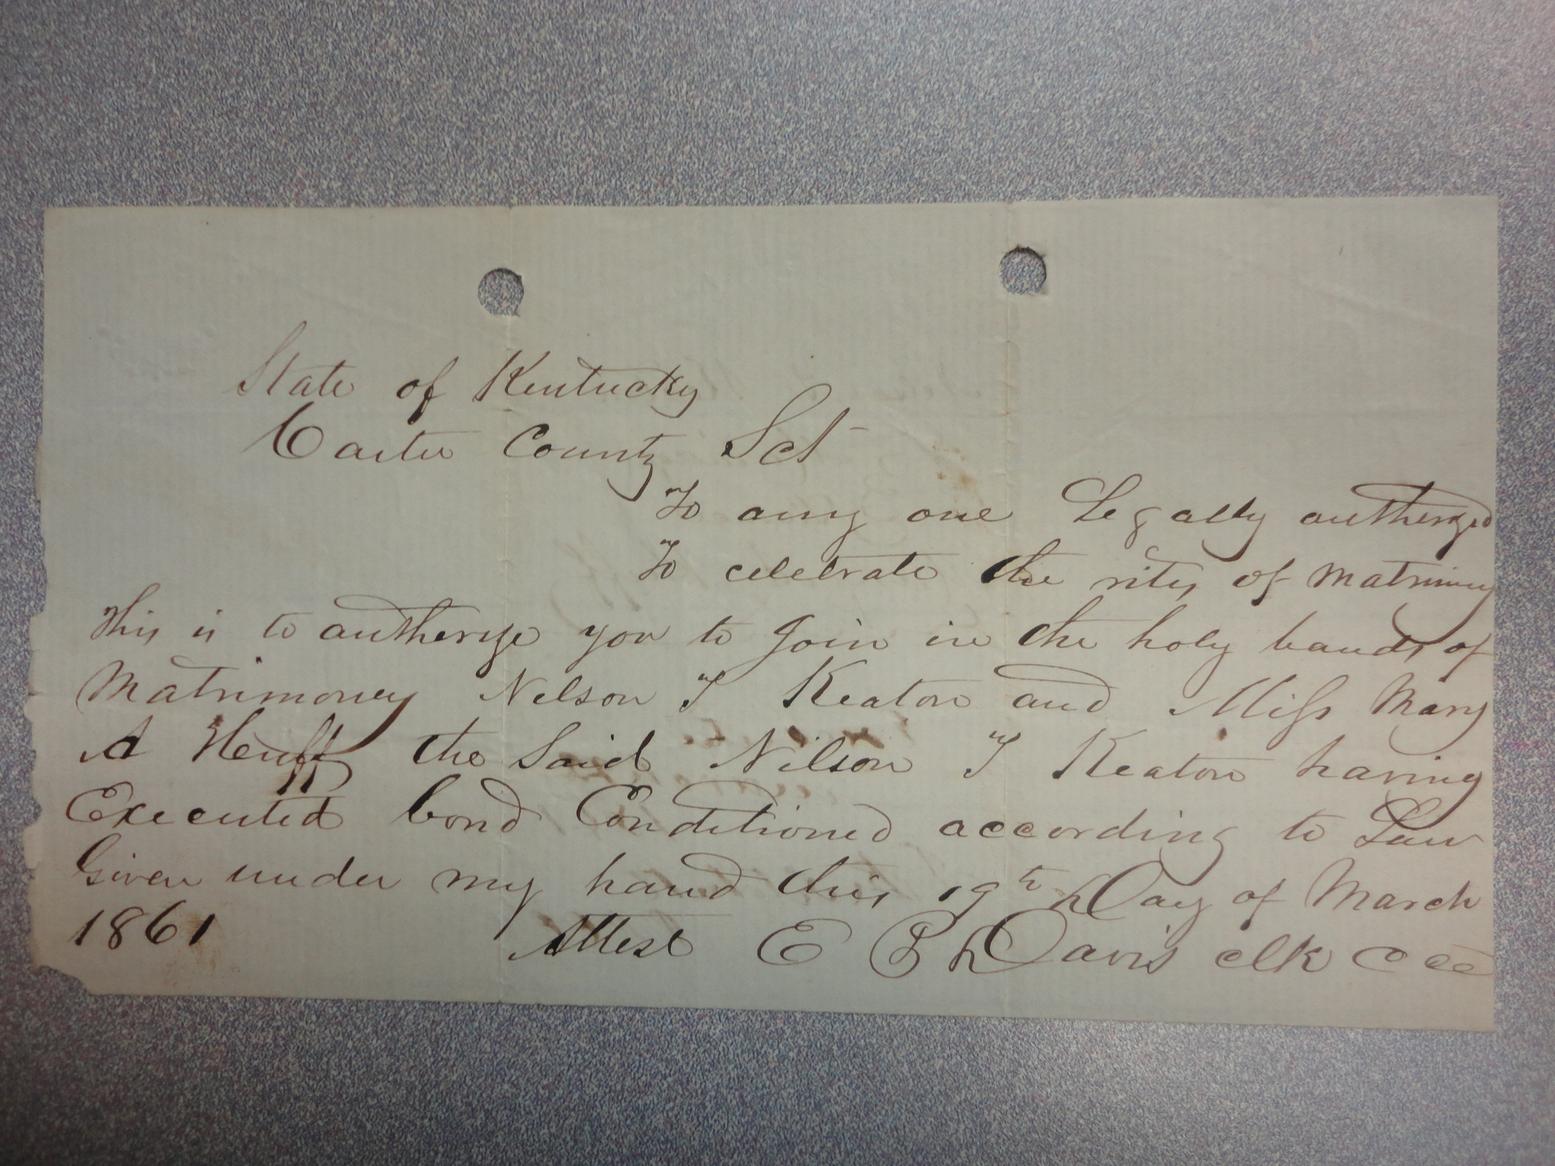 State of Kentucky
Carter County Sct
To any one Legallyautherized
To celebrate the rites of Matrimony
This is to autherize you to Join in the holy bands of
Matrimoney Nelson T Keaton and Miss Mary
A Huff the Said Nilson T Keaton having
Executed bond Conditioned according to Law
Given under my hand this 19th Day of March
1861 Attest E B Davis clk C C C